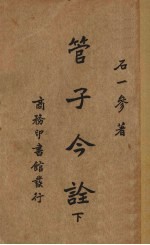 石一參著
管子今詮
下
商務印書館發行